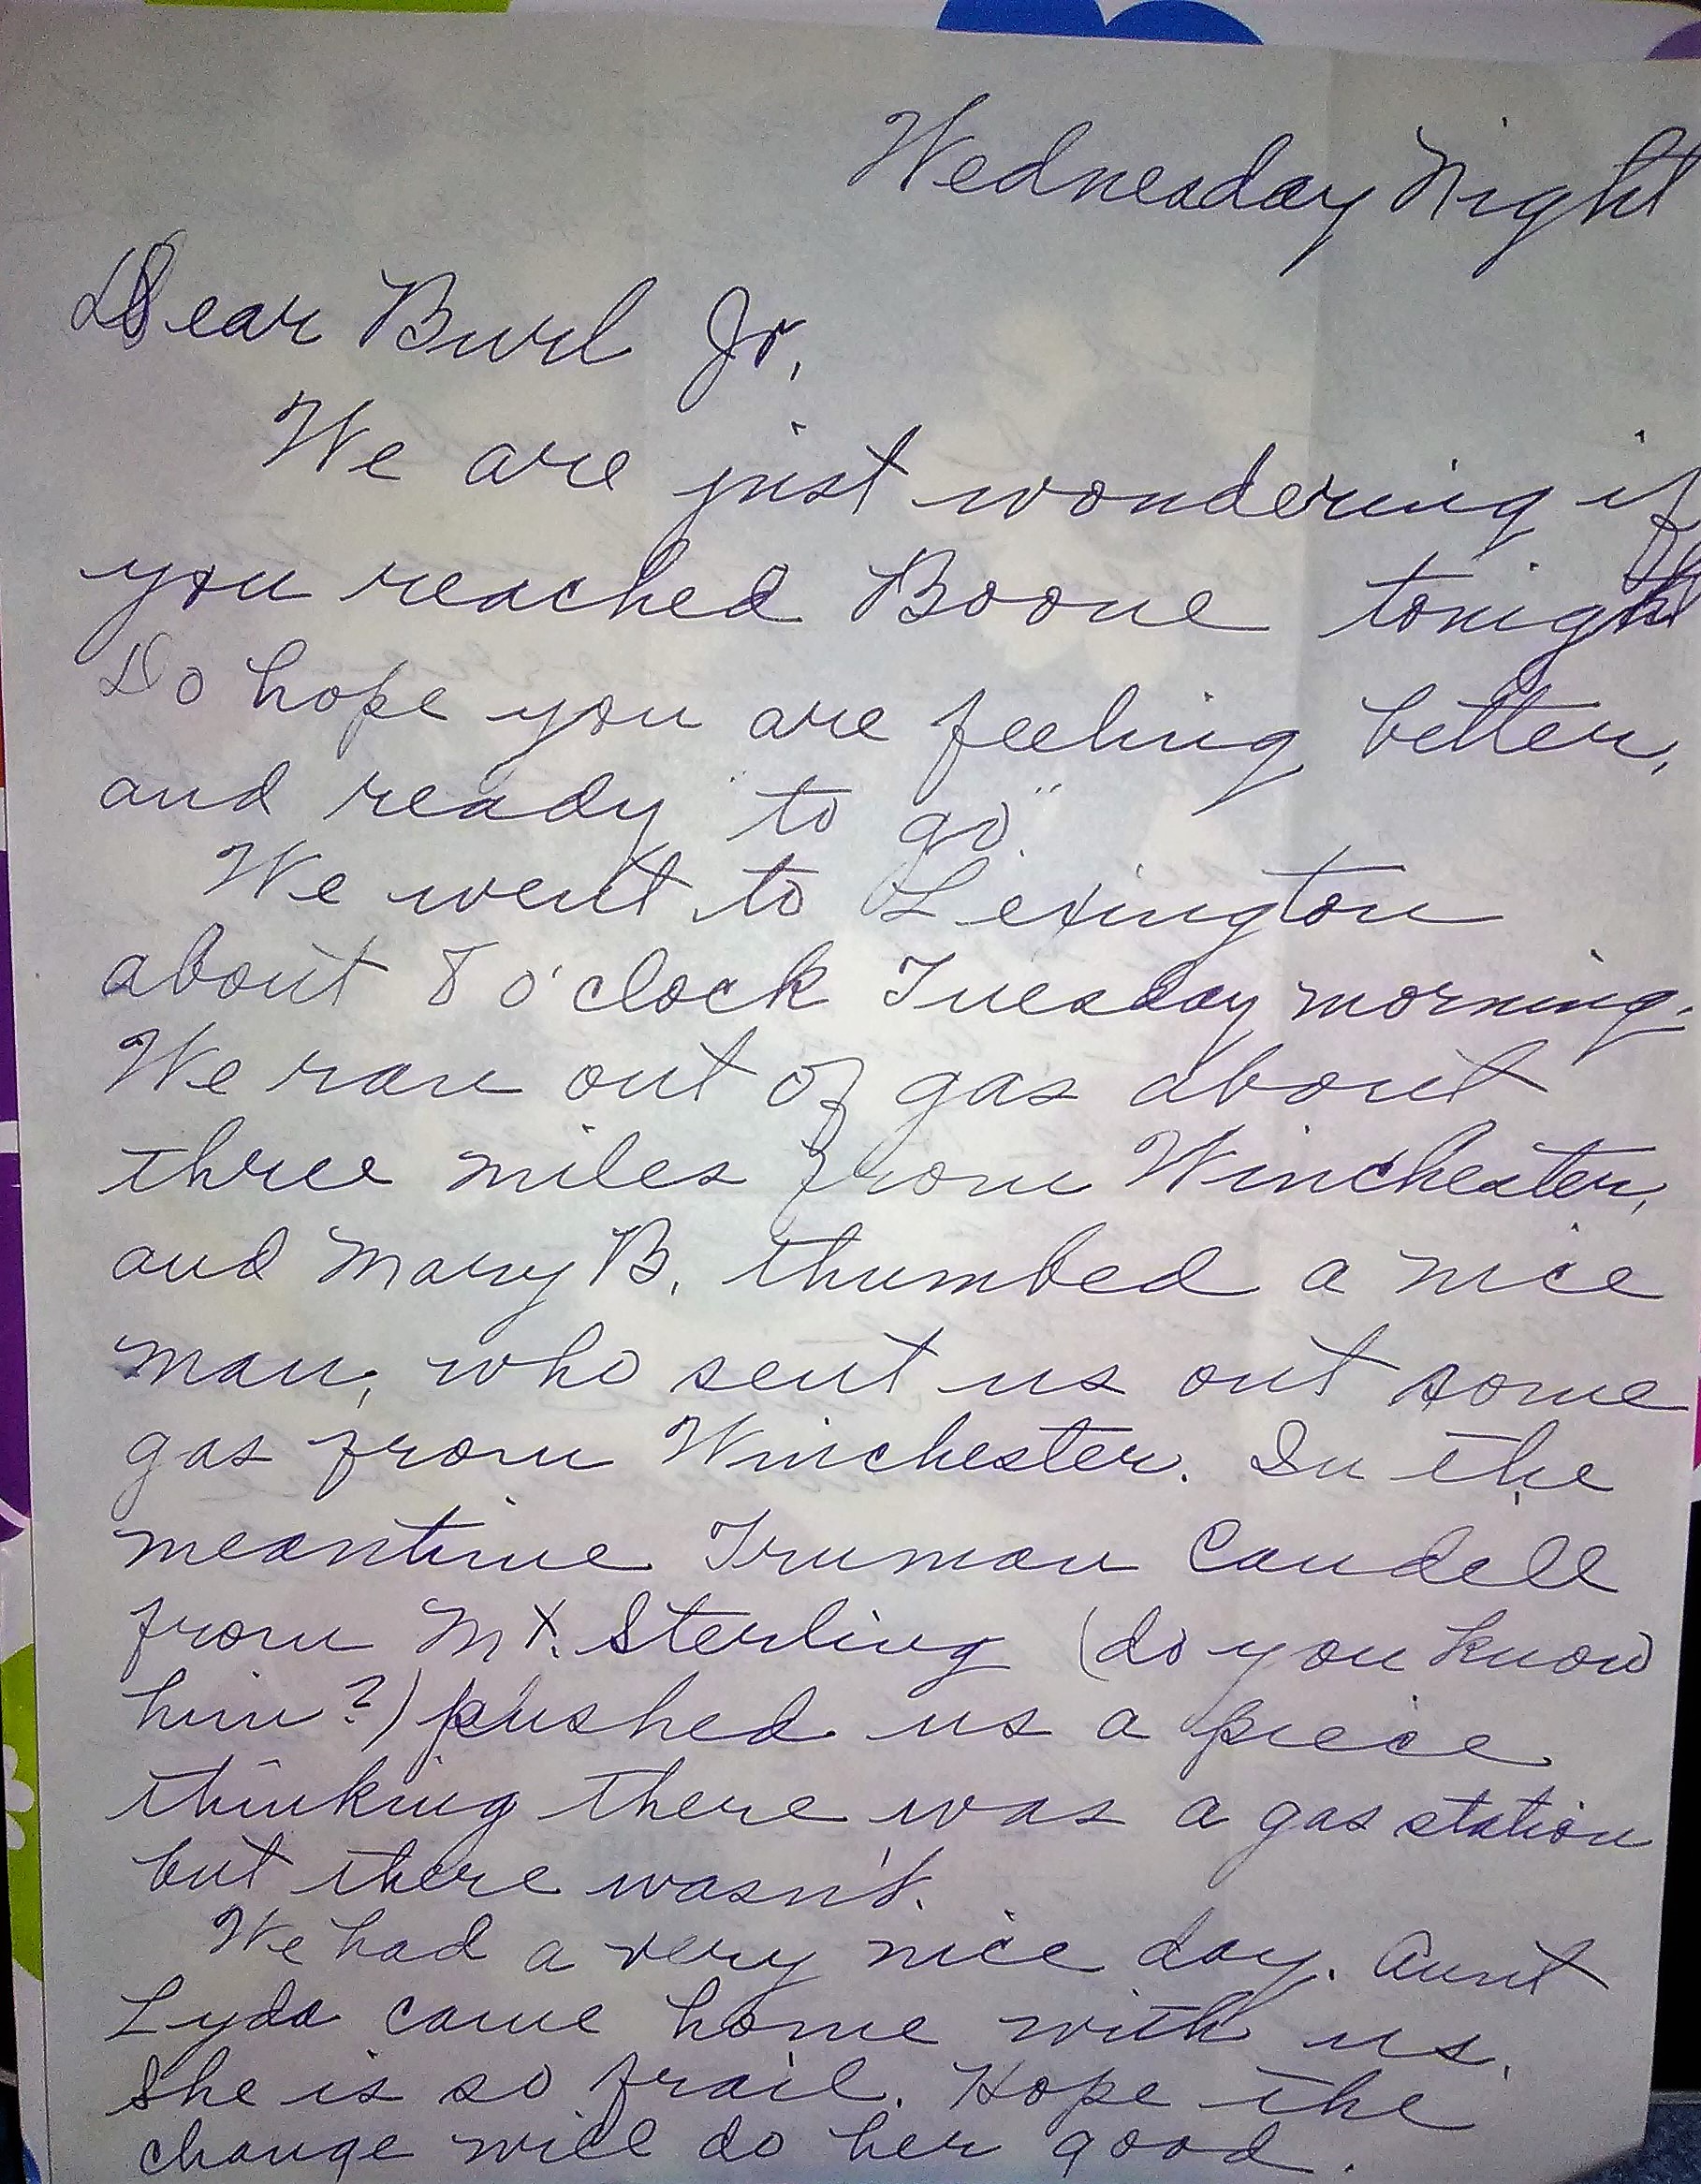 Wednesday Night
Dear Burl Jr,
We are just wondering if
you reached Boone tonight
Do hope you are feeling better,
and ready "to go".
We went to Lexington
about 8 o'clock Tuesday morning.
We ran out of gas about
three miles from Winchester,
and Mary B. thumbed a nice
man, who sent us out some
gas from Winchester. In the
meantime Truman Caudell
from Mt. Sterling (do you know
him?) pushed us a piece
thinking there was a gas station
but there wasn't.
We had a very nice day. Aunt
Lyda came home with us.
She is so frail. Hope the
change will do her good.